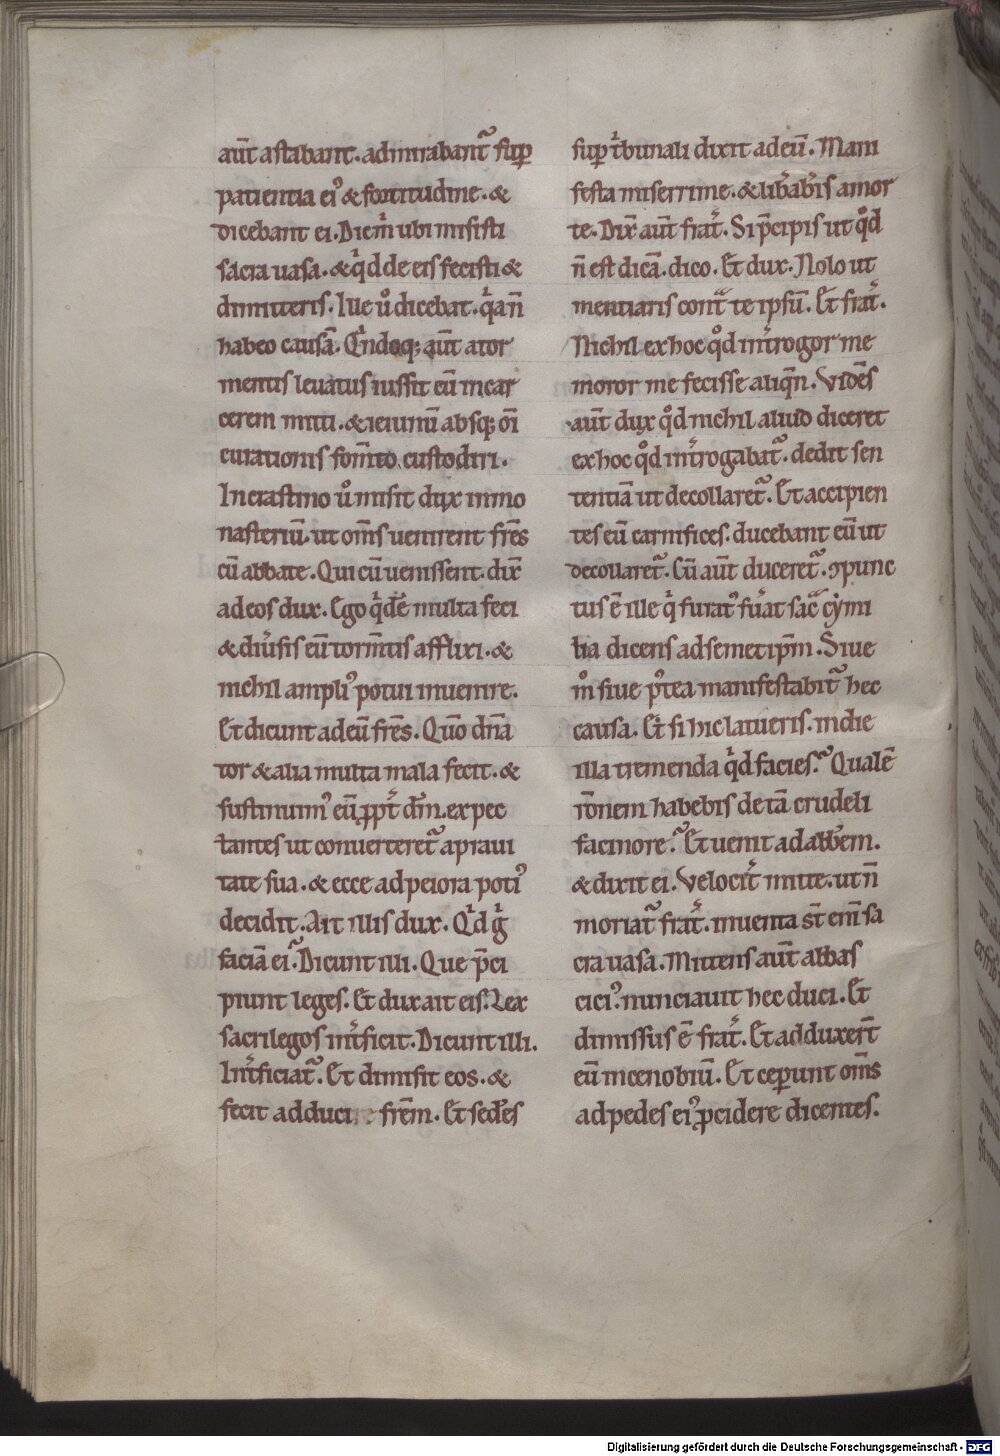 aūt astabant. admirabant᷑ suꝑ
patientia eiꝰ & fortitudine. &
dicebant ei. Dic m̄ ubi misisti
sacra uasa. & qͥd de eis fecisti &
dimitteris. Ille u̾ dicebat. qͥa ñ
habeo causā. Qͣndoq; aūt a tor
mentis leuatus iussit eū in car
cerem mitti. & ieiunū absq; ōi
curationis fom̄to custodiri.
In crastino u̾ misit dux in mo
nasteriū. ut om̄s uenirent fr̄es
cū abbate. Qui cū uenissent. dix̄
ad eos dux. Ego qͥdē multa feci
& diu̾sis eū torm̄tis afflixi. &
nichil ampliꝰ potui inuenire.
Et dicunt ad eū fr̄es. Quō dn̄a
tor & alia multa mala fecit. &
sustinuimꝰ eū ꝓpt̾ dm̄. expec
tantes ut conuerteret᷑ a praui
tate sua. & ecce ad peiora potiꝰ
decidit. Ait illis dux. Qͥd gͦ
faciā ei? Dicunt illi. Que p̄ci
piunt leges. Et dux ait eis. Lex
sacrilegos int̾ficit. Dicunt illi.
Int̾ficiat᷑. Et dimisit eos. &
fecit adduci fr̄em. Et sedēs
suꝑ tͥbunali dixit ad eū. Mani
festa miserrime. & lib̾ab̾is a mor
te. Dix̄ aūt frat̾. Si p̄cipis ut qͦd
ñ est dicā. dico. Et dux. Nolo ut
mentiaris contͣ te ipsū. Et frat̾.
Nichil ex hoc qͦd int̾rogor me
moror me fecisse aliqͣn. Vidēs
aūt dux qͦd nichil aliud diceret
ex hoc qͦd int̾rogabat᷑. dedit sen
tentiā ut decollaret᷑. Et accipien
tes eū carnifices. ducebant eū ut
decollaret᷑. Cū aūt duceret᷑. ꝯpunc
tus ē ille qͥ furatꝰ fu̾at sacͣ cymi
lia dicens ad semetip̄m. Siue
m̊ siue pꝰtea manifestabit᷑ hec
causa. Et si hic latueris. in die
illa tremenda qͥd facies? Qualē
rōnem habebis de tā crudeli
facinore? Et uenit ad abb̄em.
& dixit ei. Velocit̾ mitte. ut ñ
moriat᷑ frat̾. inuenta st̄ enī sa
cra uasa. Mittens aūt abbas
ciciꝰ. nunciauit hec duci. Et
dimissus ē frat̾. Et adduxer̄t
eū in cenobiū. Et ceperunt om̄s
ad pedes eiꝰ ꝓcidere dicentes.
Digitalisierung gefördert durch die Deutsche Forschungsgemeinschaft - DFG